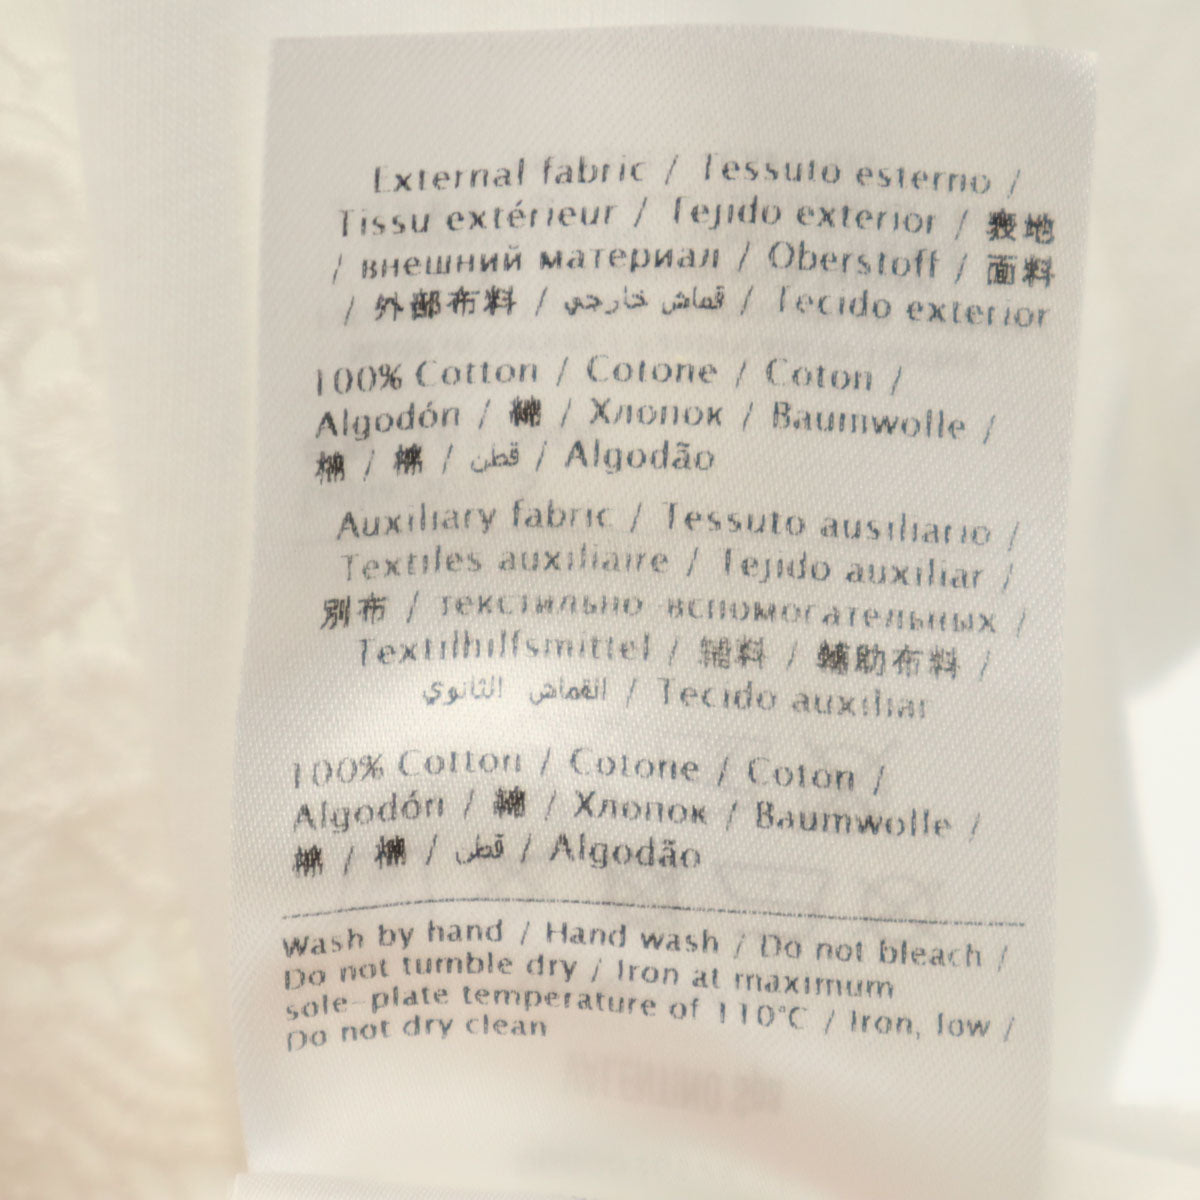 External fabric / Tessuto esterno /
Tissu extérieur / Tejido exterior / 表地
/ внешний материал / Oberstoff / 面料
/ 外部布料 / قماش خارجي / Tecido exterior
100% Cotton / Cotone / Coton /
Algodón / 綿 / Хлопок / Baumwolle /
棉 / 棉 / قطن / Algodão
Auxiliary fabric / Tessuto ausiliario /
Textiles auxiliaire / Tejido auxiliar /
別布 / текстильно-вспомогательных /
Textilhilfsmittel / 辅料 / 輔助布料 /
القماش الثانوي / Tecido auxiliar
100% Cotton / Cotone / Coton /
Algodón / 綿 / Хлопок / Baumwolle /
棉 / 棉 / قطن / Algodão
Wash by hand / Hand wash / Do not bleach /
Do not tumble dry / Iron at maximum
sole-plate temperature of 110°C / Iron, low /
Do not dry clean